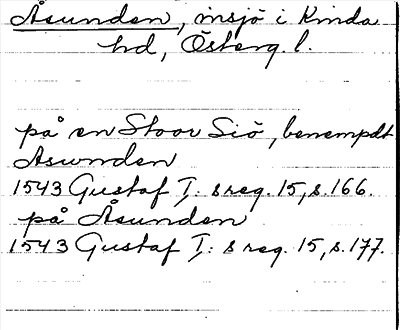 Åsunden, insjö i Kinda
hd, Österg. l.
på en Stoor Siö, benempdt
Aswnden
1543 Gustaf I: s reg. 15, s. 166.
på Åsunden
1543 Gustaf I: s reg. 15, s. 177.